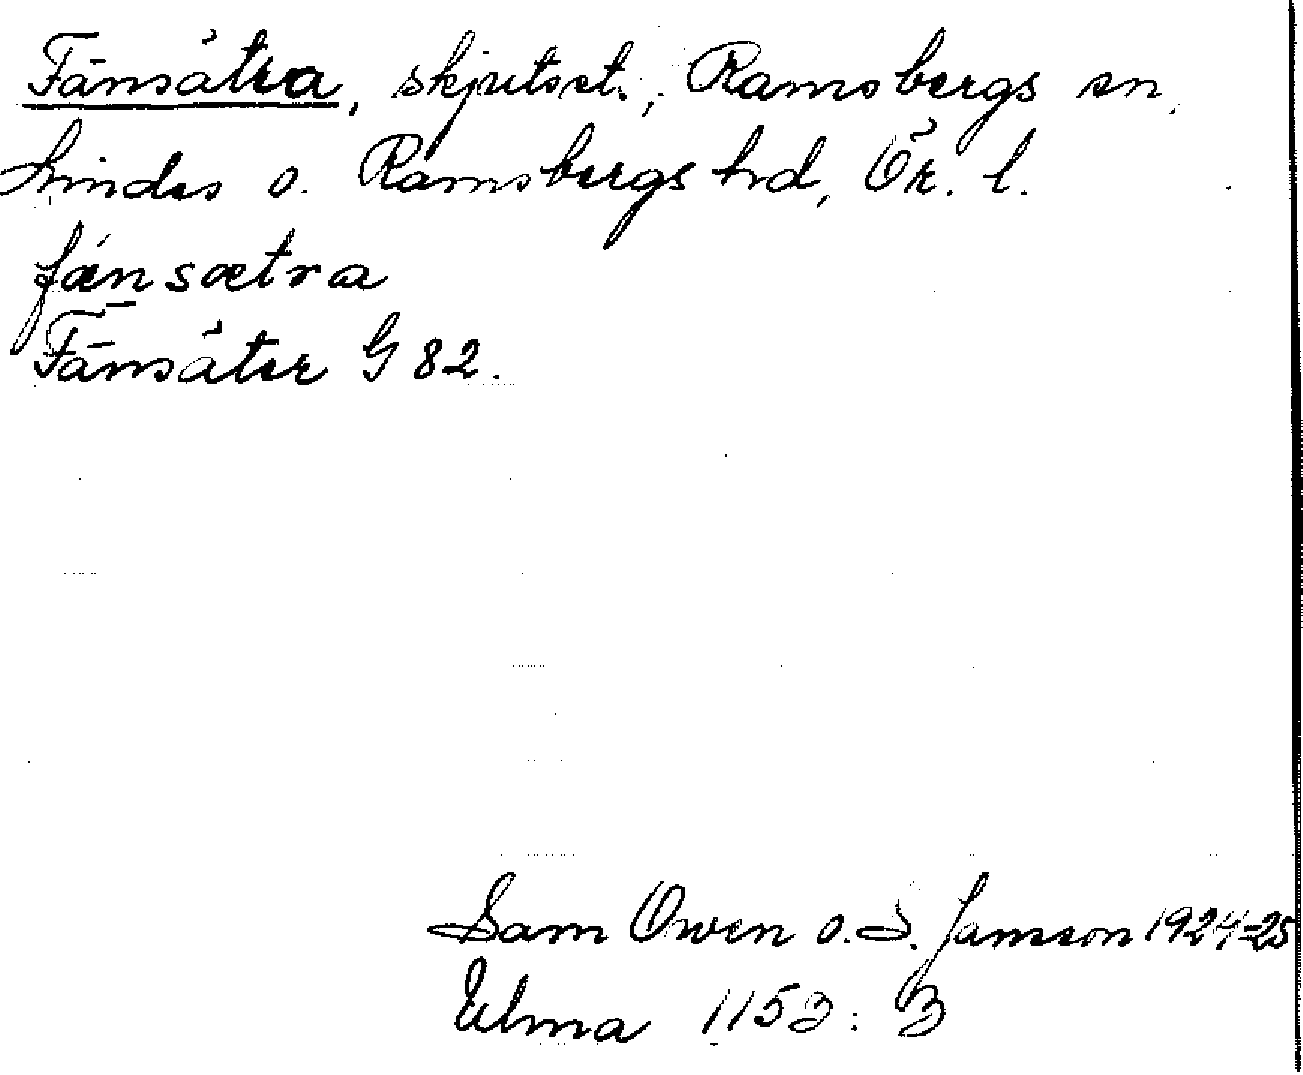 Fänsätra, skjutst., Ramsbergs sn,
Lindes o. Ramsbergs hd, Ör. l.
fä́nsætra
Fänsäter G 82.
Sam Owen o. S. Jansson 1924-25
Ulma 1153: 3